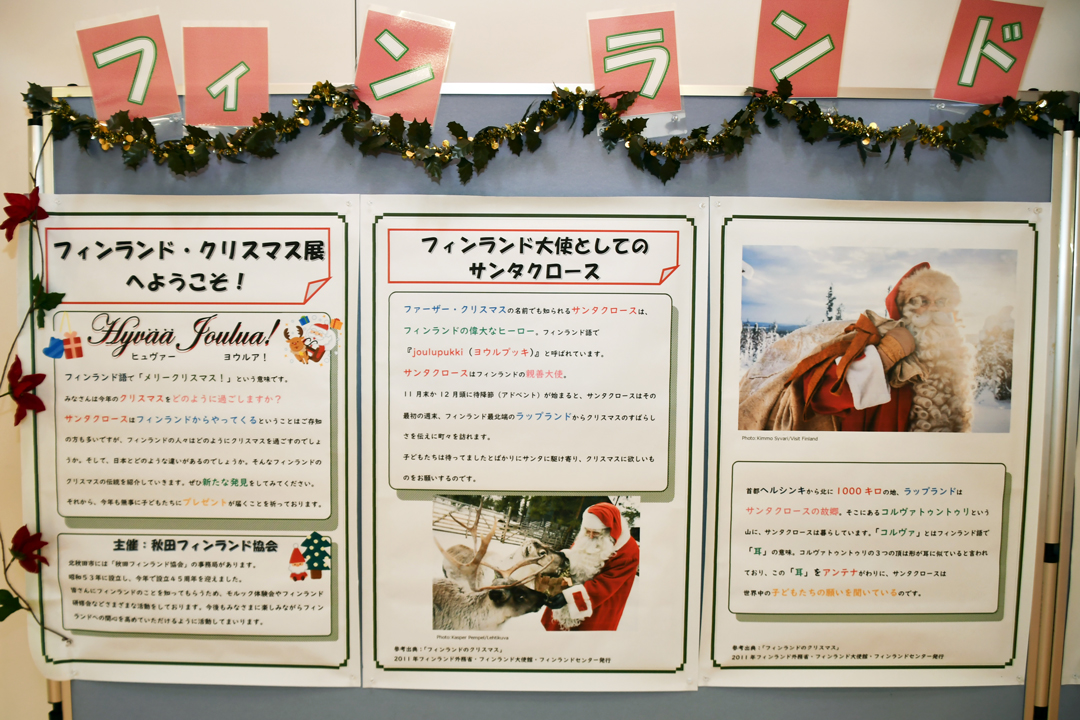 フィンランド
フィンランド・クリスマス展
へようこそ！
Hyvää Joulua!
ヒュヴァー ヨウルア！
フィンランド語で「メリークリスマス！」という意味です。
みなさんは今年のクリスマスをどのように過ごしますか？
サンタクロースはフィンランドからやってくるということはご存知
の方も多いですが、フィンランドの人々はどのようにクリスマスを過ごすのでしょ
うか。そして、日本とどのような違いがあるのでしょうか。そんなフィンランドの
クリスマスの伝統を紹介していきます。ぜひ新たな発見をしてみてください。
それから、今年も無事に子どもたちにプレゼントが届くことを祈っております。
主催：秋田フィンランド協会
北秋田市には「秋田フィンランド協会」の事務局があります。
昭和53年に設立し、今年で設立45周年を迎えました。
皆さんにフィンランドのことを知ってもらうため、モルック体験会やフィンランド
研修会などさまざまな活動をしております。今後もみなさまに楽しみながらフィン
ランドへの関心を高めていただけるように活動してまいります。
フィンランド大使としての
サンタクロース
ファーザー・クリスマスの名前でも知られるサンタクロースは、
フィンランドの偉大なヒーロー。フィンランド語で
『joulupukki（ヨウルプッキ）』と呼ばれています。
サンタクロースはフィンランドの親善大使。
11月末か12月頭に待降節（アドベント）が始まると、サンタクロースはその
最初の週末、フィンランド最北端のラップランドからクリスマスのすばらし
さを伝えに町々を訪れます。
子どもたちは待ってましたとばかりにサンタに駆け寄り、クリスマスに欲しいも
のをお願いするのです。
参考出典：「フィンランドのクリスマス」
2011年フィンランド外務省・フィンランド大使館・フィンランドセンター発行
Photo Kimmo Syvari/Visit Finland
首都ヘルシンキから北に1000キロの地、ラップランドは
サンタクロースの故郷。そこにあるコルヴァトゥントゥリという
山に、サンタクロースは暮らしています。「コルヴァ」とはフィンランド語で
「耳」の意味。コルヴァトゥントゥリの3つの頂は形が耳に似ていると言われ
ており、この「耳」をアンテナがわりに、サンタクロースは
世界中の子どもたちの願いを聞いているのです。
参考出典：「フィンランドのクリスマス」
2011年フィンランド外務省・フィンランド大使館・フィンランドセンター発行